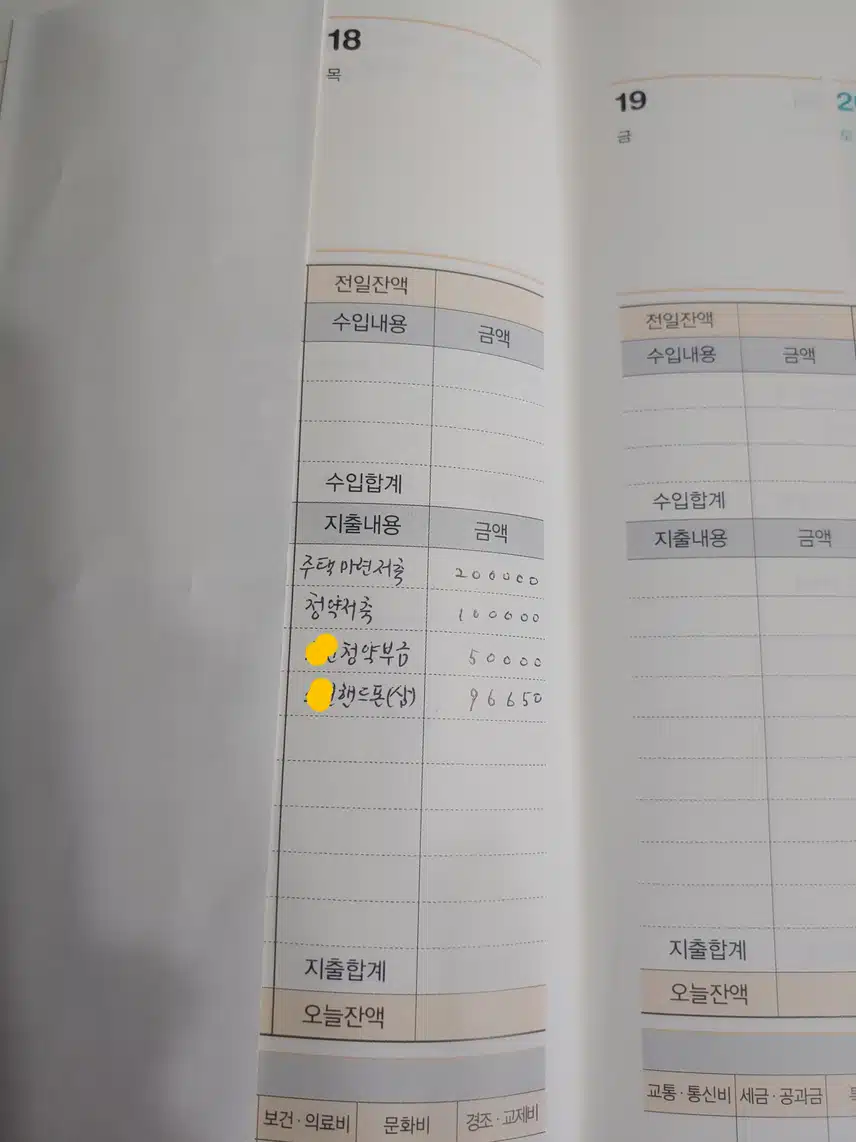 18
목
전일잔액
수입내용 금액
수입합계
지출내용 금액
주택마련저축 200000
청약저축 100000
청약부금 50000
핸드폰(삽) 96650
지출합계
오늘잔액
보건·의료비 문화비 경조·교제비
19
금
전일잔액
수입내용 금액
수입합계
지출내용 금액
지출합계
오늘잔액
교통·통신비 세금·공과금
토